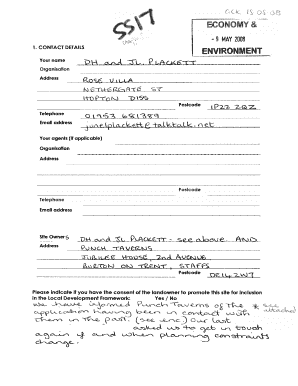 5517
ack 15.05.08
ECONOMY &
- 9 MAY 2008
ENVIRONMENT
1. CONTACT DETAILS
Your name DH and JL PLACKETT
Organisation
Address ROSE VILLA
NETHERGATE ST
HOPTON DISS
Postcode IP22 2QZ
Telephone 01953 681389
Email address junelplackett@talktalk.net
Your agents (if applicable)
Organisation
Address
Postcode
Telephone
Email address
Site Owners DH and JL PLACKETT - see above AND
Address PUNCH TAVERNS
JUBILEE HOUSE, 2nd AVENUE
BURTON ON TRENT, STAFFS
Postcode DE14 2WF
Please indicate if you have the consent of the landowner to promote this site for inclusion
in the Local Development Framework: Yes / No
We have informed Punch Taverns of the * see attached
application having been in contact with
them in the past. (see enc) Our last
asked us to get in touch
again if and when planning constraints
change.